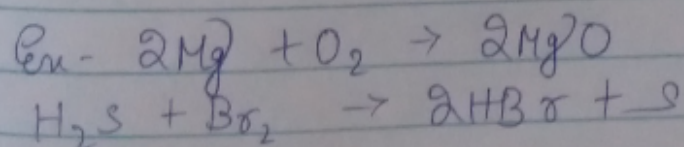 Ex- 2Mg + O₂ → 2MgO
H₂S + Br₂ → 2HBr + S